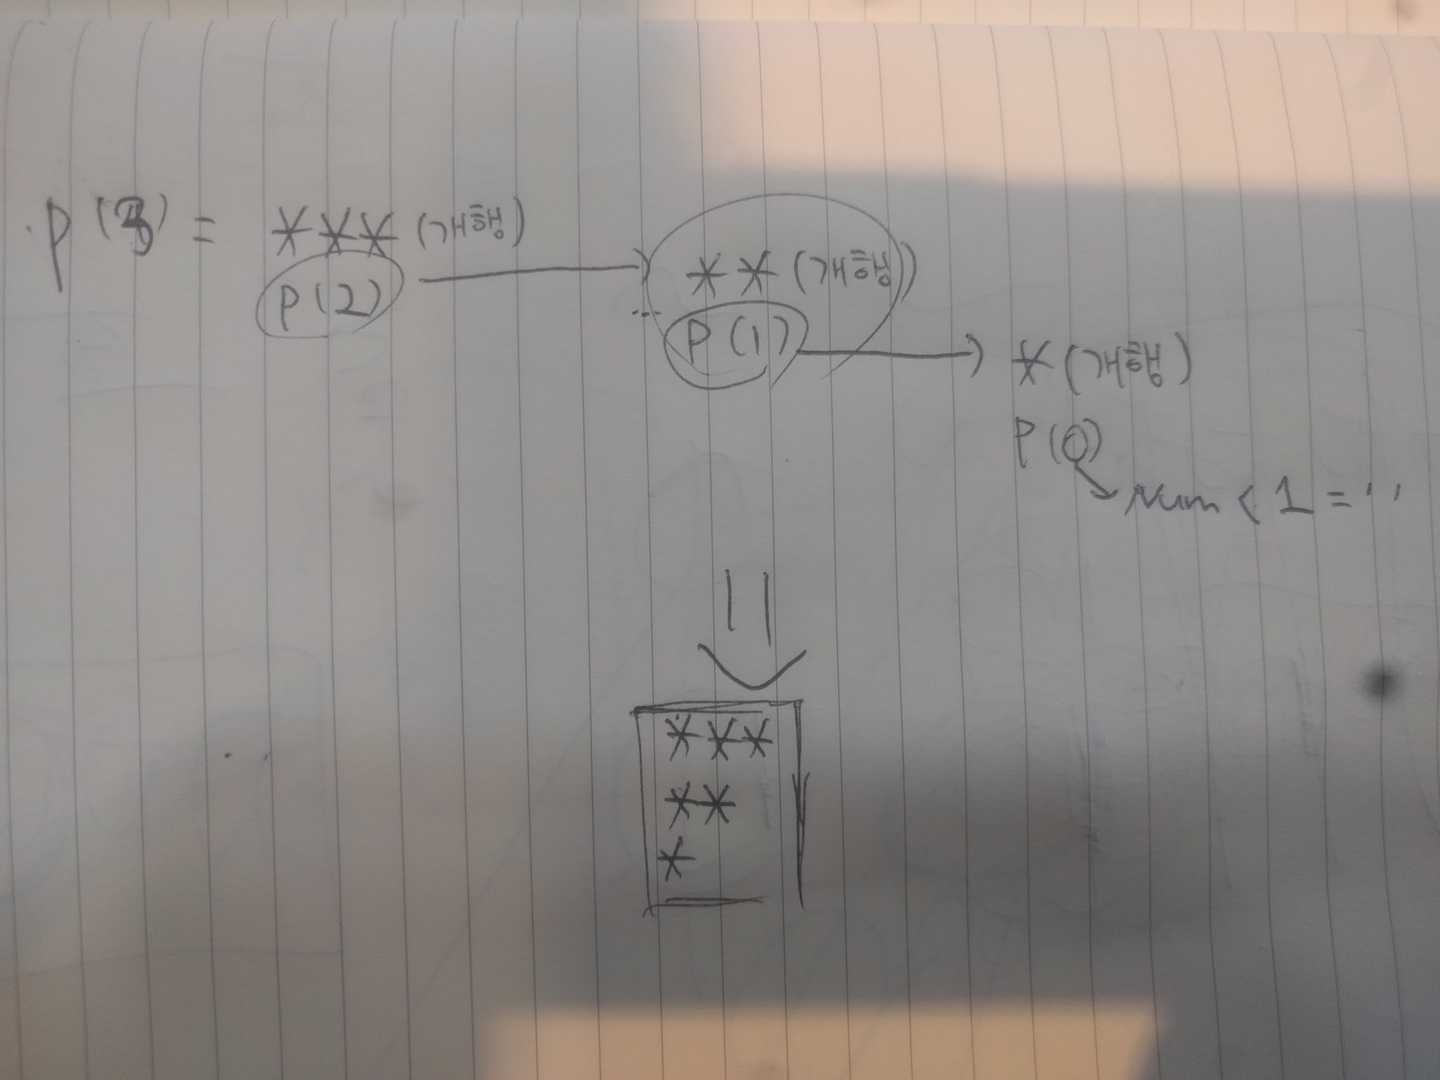 P(3) = *** (개행)
P(2)
** (개행)
P(1)
* (개행)
P(0)
Num < 1 = ' '
***
**
*